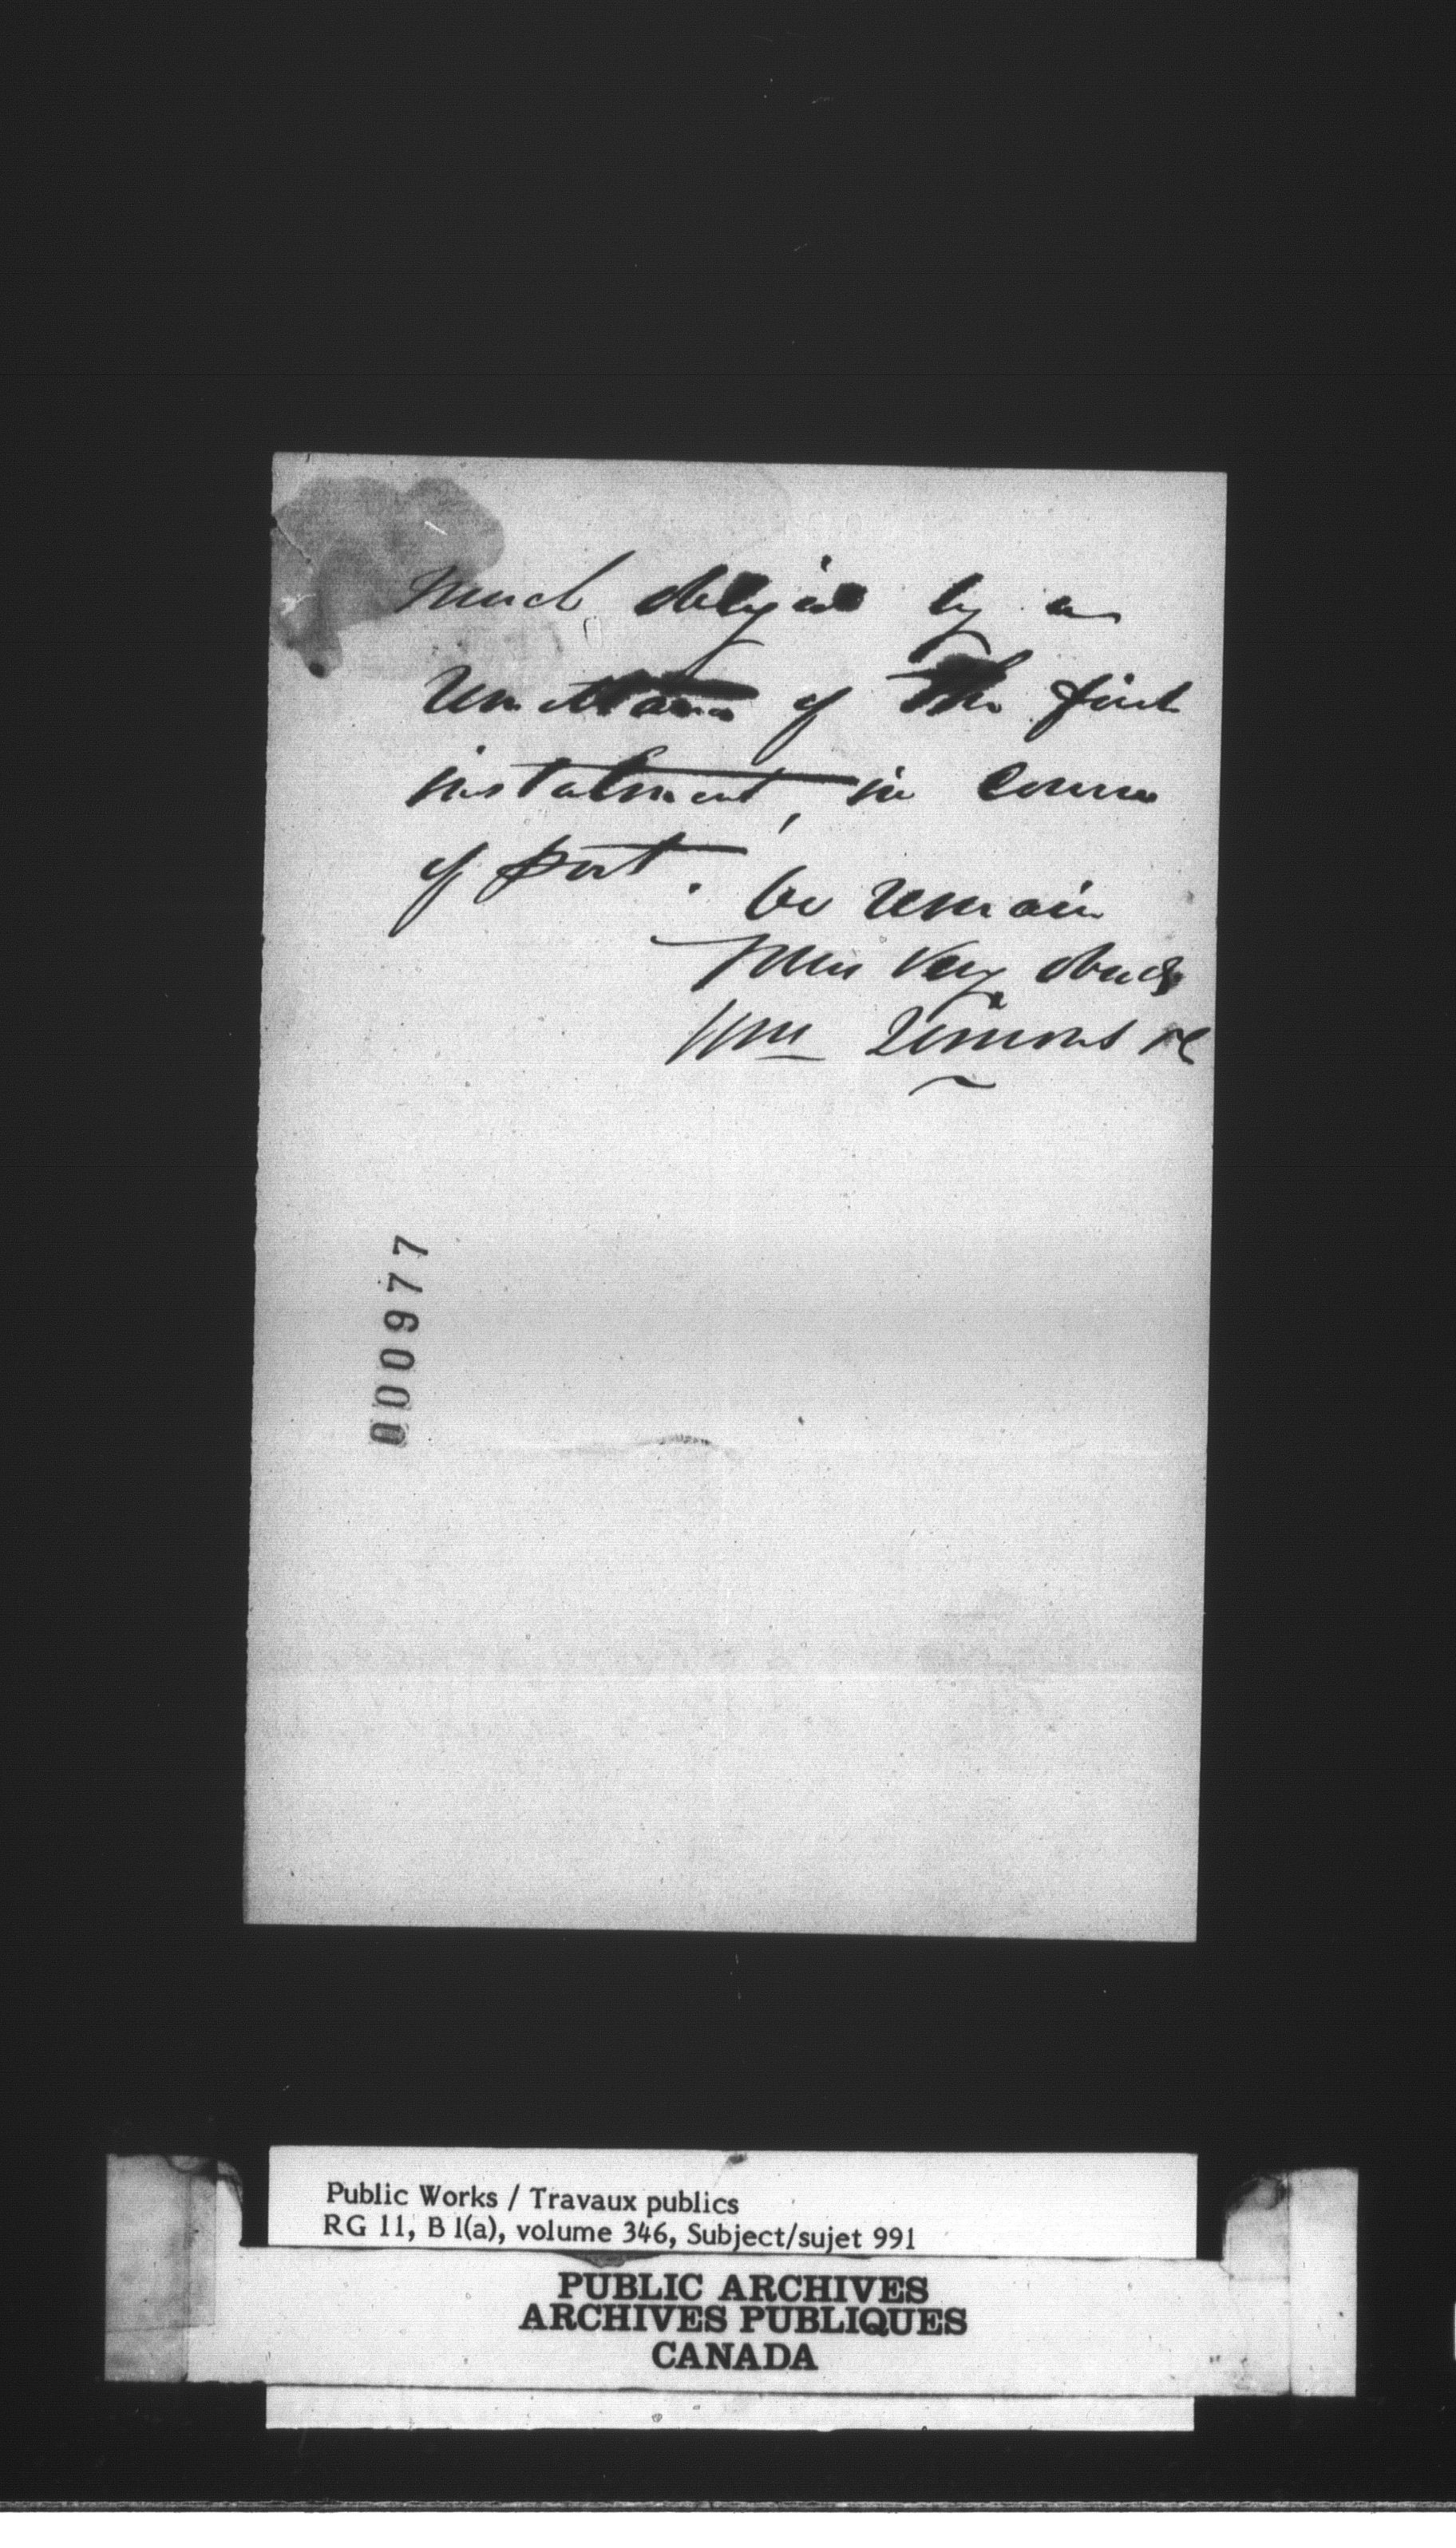 much obliged by a
remittance of the first
instalment, in course
of post.
We remain
Yours Very
Wm
000977
Public Works / Travaux publics
RG 11, B 1(a), volume 346, Subject/sujet 991
PUBLIC ARCHIVES
ARCHIVES PUBLIQUES
CANADA